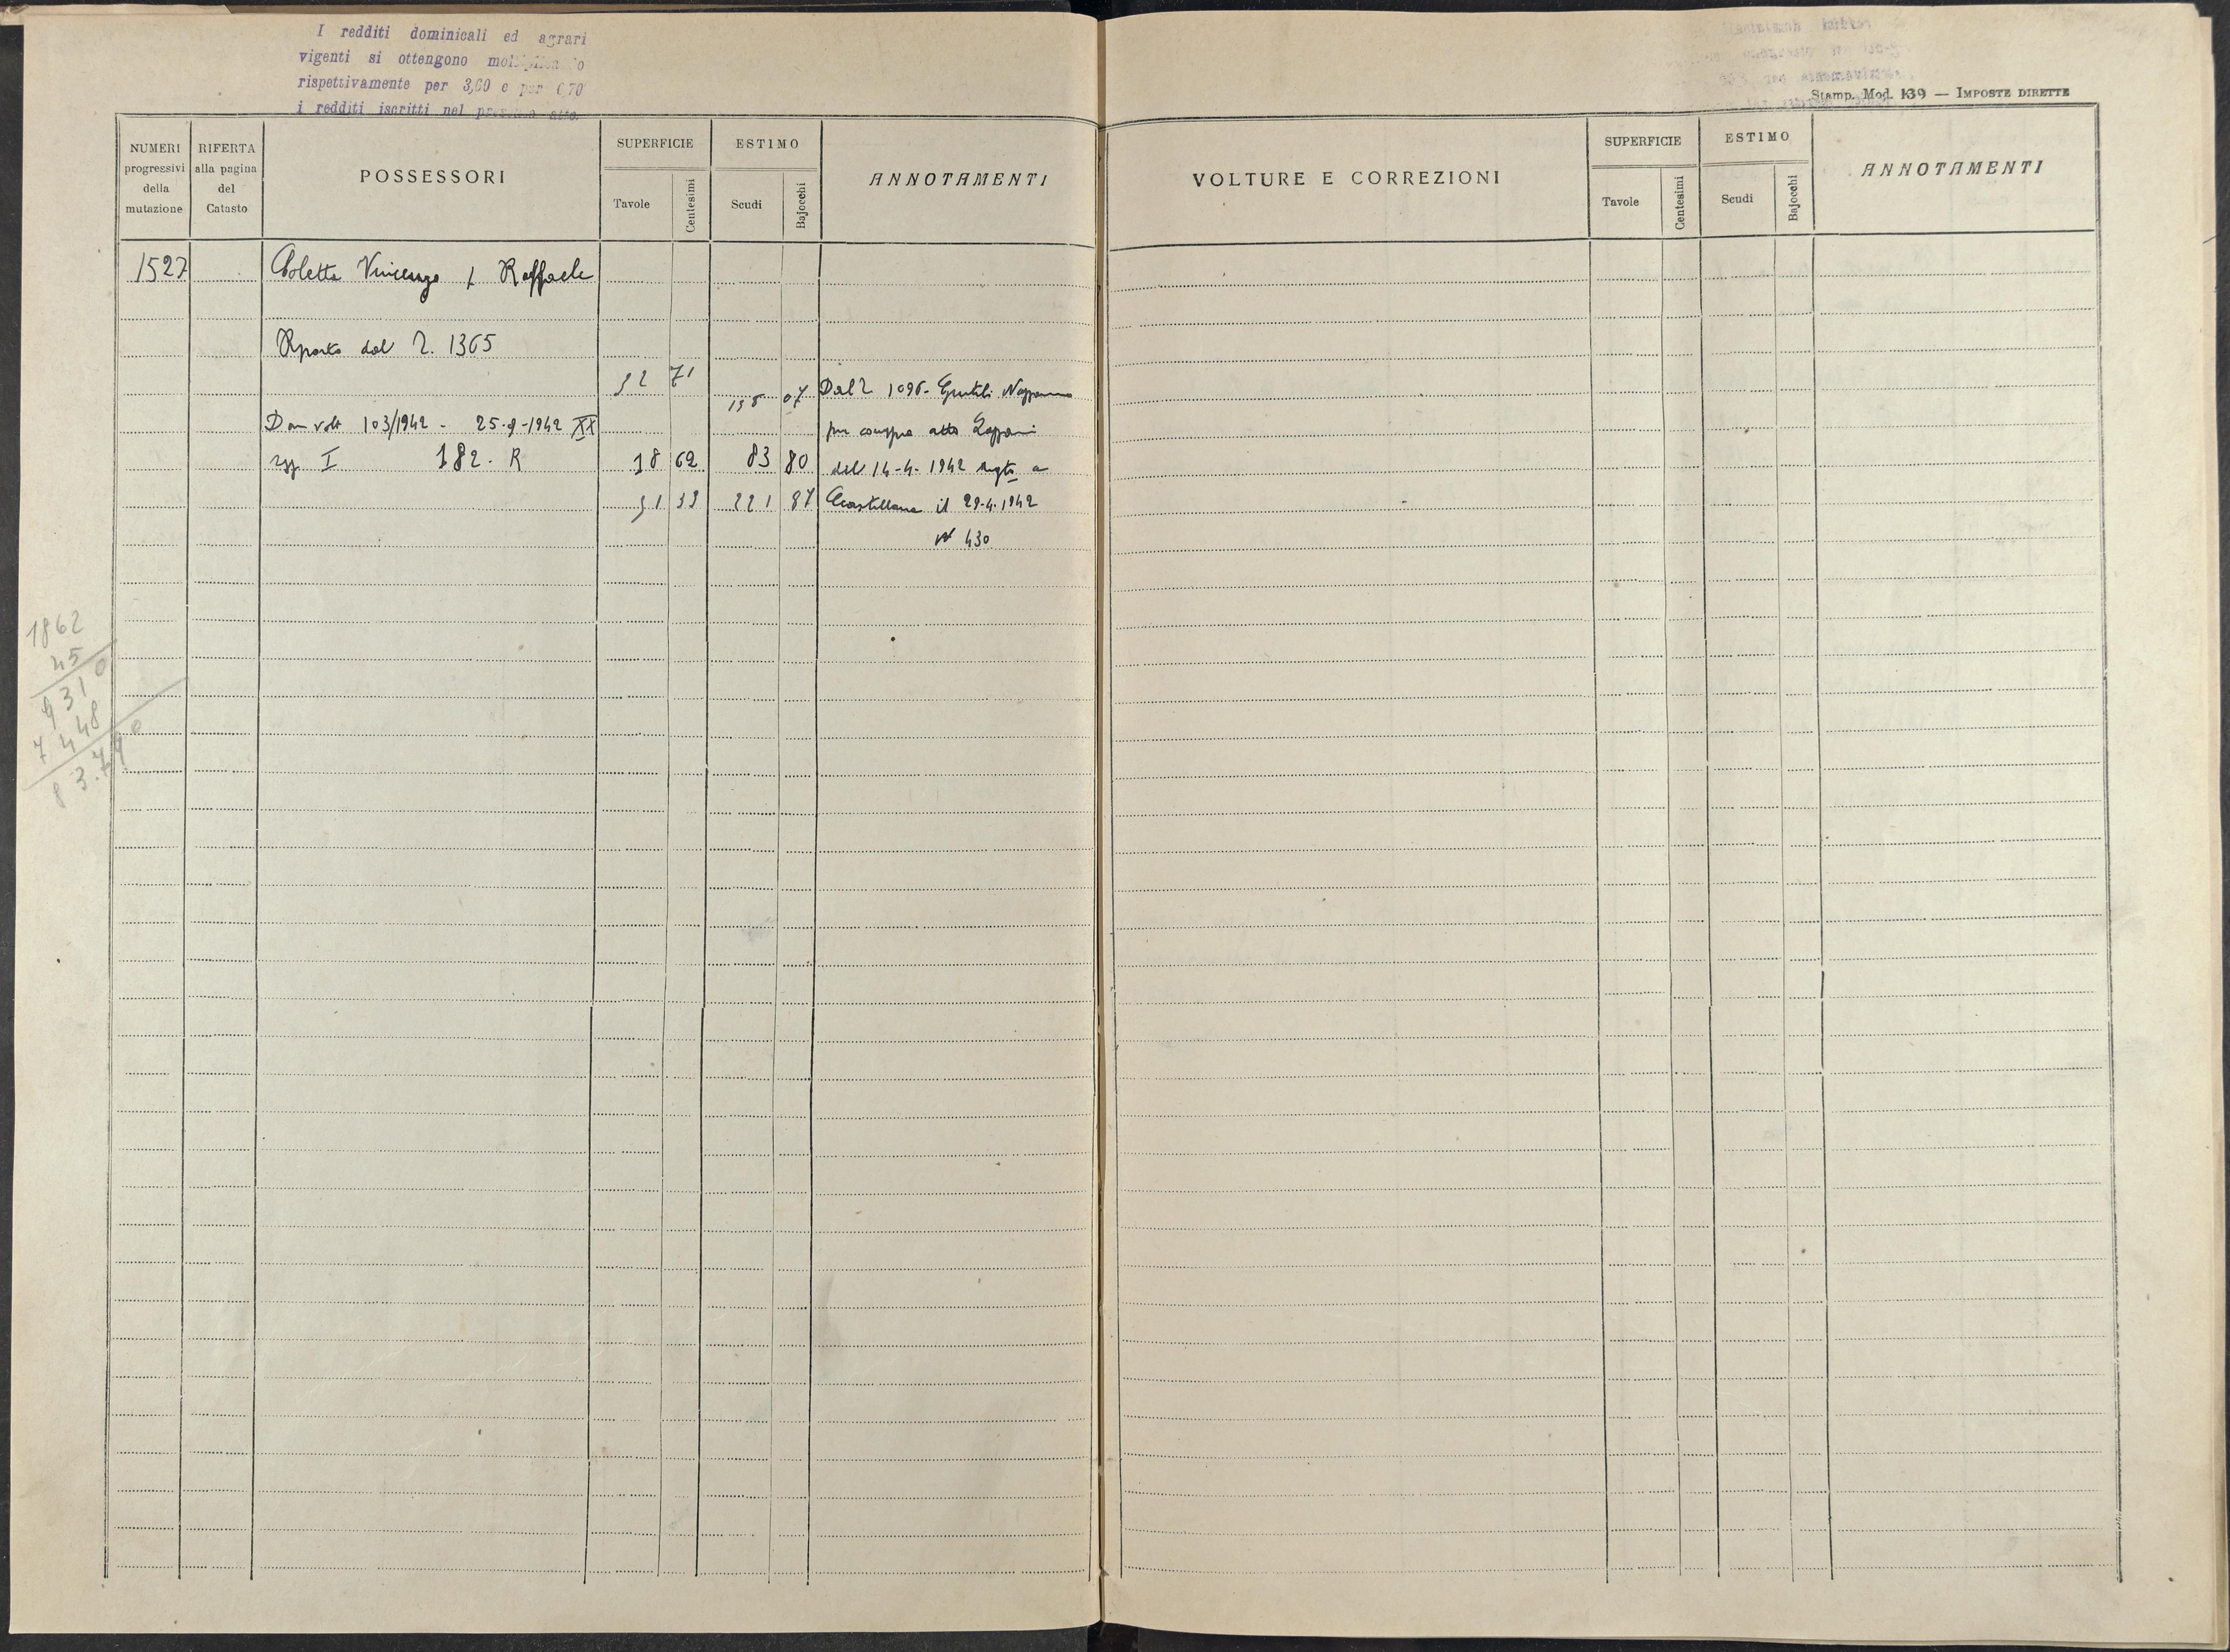 I redditi dominicali ed agrari
vigenti si ottengono
rispettivamente per 3,60 e per 0,70
i redditi iscritti nel
Stamp. Mod. 139 — IMPOSTE DIRETTE
NUMERI progressivi della mutazione
RIFERTA alla pagina del Catasto
POSSESSORI
SUPERFICIE
Tavole
Centesimi
ESTIMO
Scudi
Bajocchi
ANNOTAMENTI
VOLTURE E CORREZIONI
SUPERFICIE
Tavole
Centesimi
ESTIMO
Scudi
Bajocchi
ANNOTAMENTI
1527 Coletta Vincenzo f Raffaele
Rporto dal 2. 1365
32 71 138 07 Dal 2 1096- Gentili
Dom volt 103/1942 - 25-9-1942 XX per compra atto
I 182. R 18 62 83 80 del 14-4-1942 regto a
51 33 221 87 Ccastellana il 29-4-1942
N 430
1862
45
9310
7448
83.790